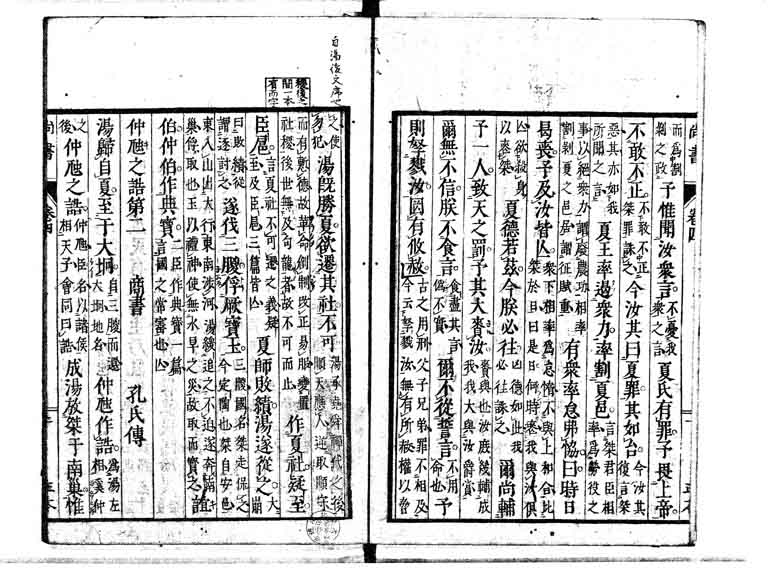 尚書 卷四
而爲割剥之政 予惟聞汝衆言 不憂我衆之言 夏氏有罪予畏上帝
不敢不正 不敢不正桀罪誅之 今汝其曰夏罪其如台 今汝其復言桀
惡其亦如我所聞之言 夏王率遏衆力率割夏邑 言桀君臣相率爲勞役之
事以絕衆力謂廢農功相率割剥夏之邑居謂征賦重 有衆率怠弗協曰時日
曷喪予及汝皆亡 衆下相率爲怠惰不與上和合比桀於日曰是日何時喪我與汝俱
亡欲殺身以喪桀 夏德若茲今朕必往 凶德如此我必往誅之 爾尚輔
予一人致天之罰予其大賚汝 賚與也汝庶幾輔成我我大與汝爵賞
爾無不信朕不食言 食盡其言僞不實 爾不從誓言 不用命也 予
則孥戮汝罔有攸赦 古之用刑父子兄弟罪不相及今云孥戮汝無有所赦權以脅
之使勿犯 湯旣勝夏欲遷其社不可 湯承堯舜禪代之後順天應人逆取順守
而有慙德故革命創制改正易服變置社稷後世無及句龍者故不可而止 作夏社疑至
臣扈 言夏社不可遷之義疑至及臣扈三篇皆亡 夏師敗績湯遂從之 大崩
曰敗績從謂逐討之 遂伐三朡俘厥寶玉 三朡國名桀走保之今定陶也桀自安邑
東入山出太行東南涉河湯緩追之不迫遂奔南巢俘取也玉以禮神使無水旱之災故取而寶之 誼
伯仲伯作典寶 二臣作典寶一篇言國之常寶也亡
仲虺之誥第二 商書 孔氏傳
湯歸自夏至于大坰 自三朡而還大坰地名 仲虺作誥 爲湯左相奚仲
之後 仲虺之誥 仲虺臣名以諸侯相天子會同曰誥 成湯放桀于南巢惟
尚書 卷四